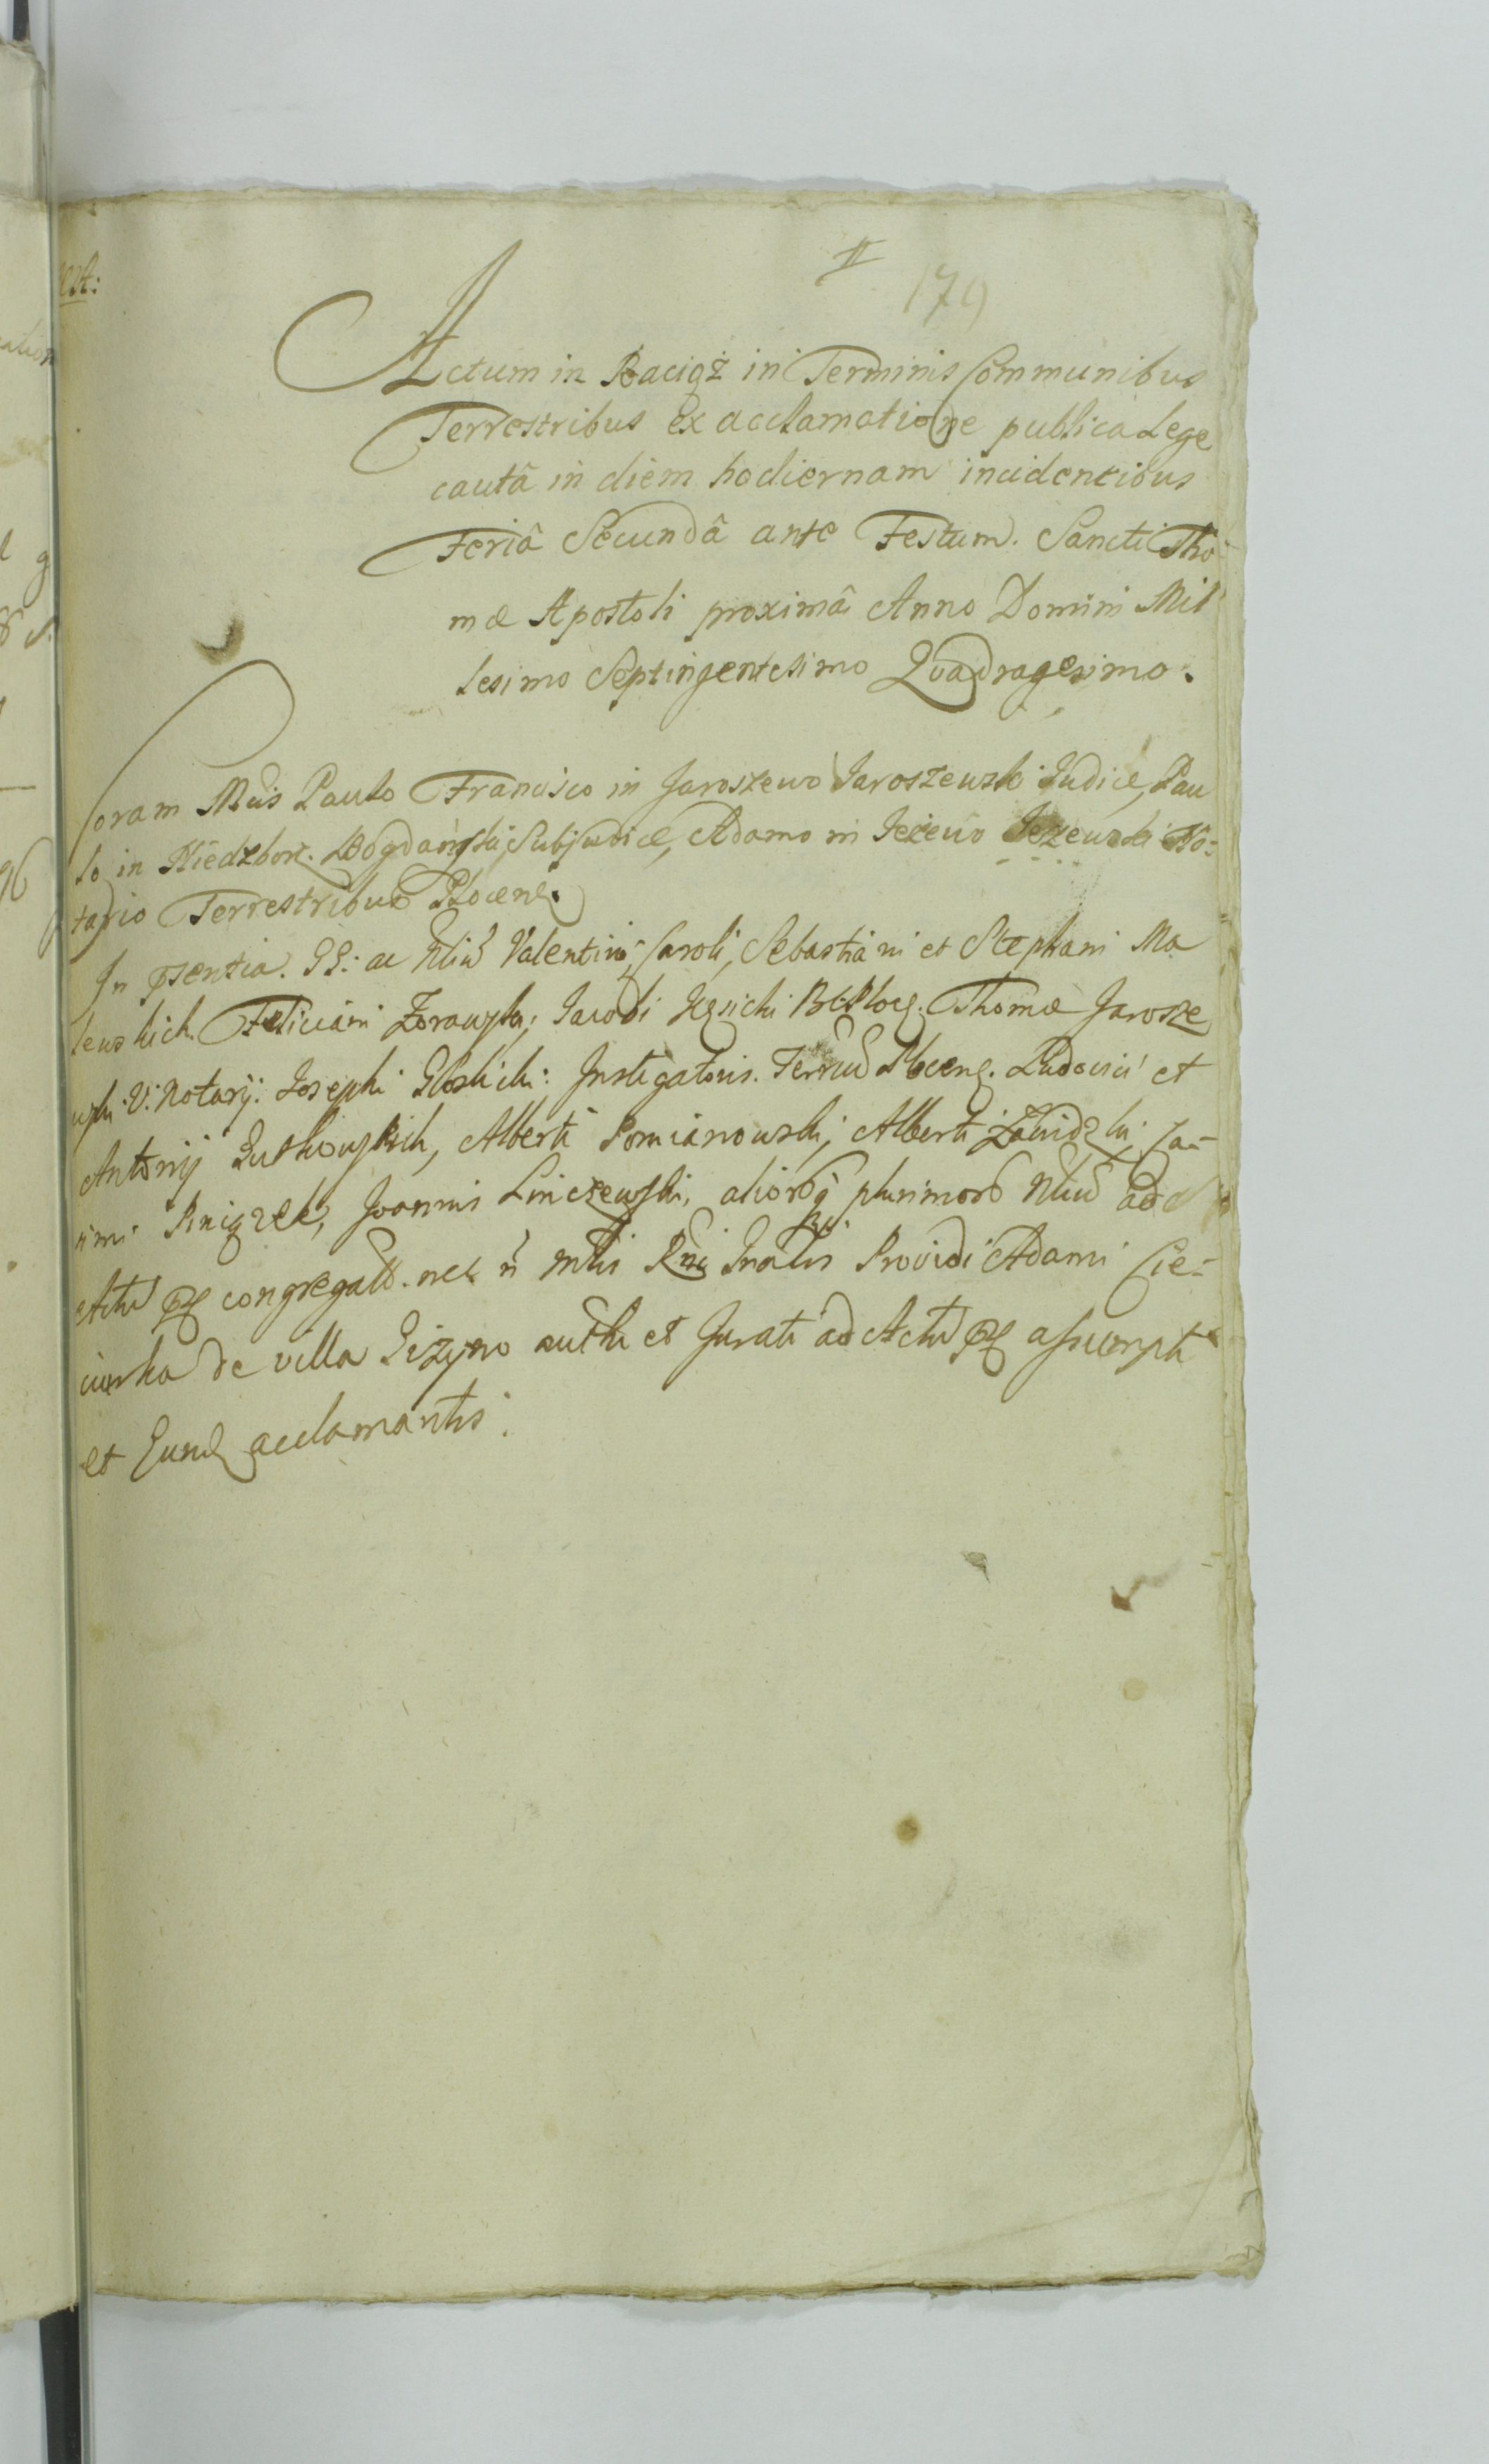 II
179
Actum in Raciąż in Terminis Communibus
Terrestribus ex acclamatione publica Lege
cautâ in diem hodiernam incidentibus
Feriâ Secundâ ante Festum. Sancti Tho-
mæ Apostoli proximâ Anno Domini Mil
lesimo Septingentesimo Quadragesimo.
Coram Mcis Paulo Francisco in Jaroszewo Jaroszewski Judice, Pau
lo in Niedzbor. Bogdański, Subjudice, Adamo in Jeżewo Jeżewski No-
tario Terrestribus Plocen.
In pntia. GG: ac Nlium Valentini, Caroli, Sebastiani et Stephani Ma
lewskich. Feliciani Zorawski, Jacobi Thomæ Jarosze
wski V. Notarij. Josephi Instigatoris. Terrium Plocens. Ludovici et
Antonij Gutkowskich, Alberti Pomianowski, Alberti Zawidzki, Ca-
simi Pniązek, Joannis Linczewski, aliorq plurimor Nlium ad
Actu congregator. nec n Mlis Rni Providi Adami Cie-
de villa Giżyno et Jurati ad Actu assumpti
et acclamantis.